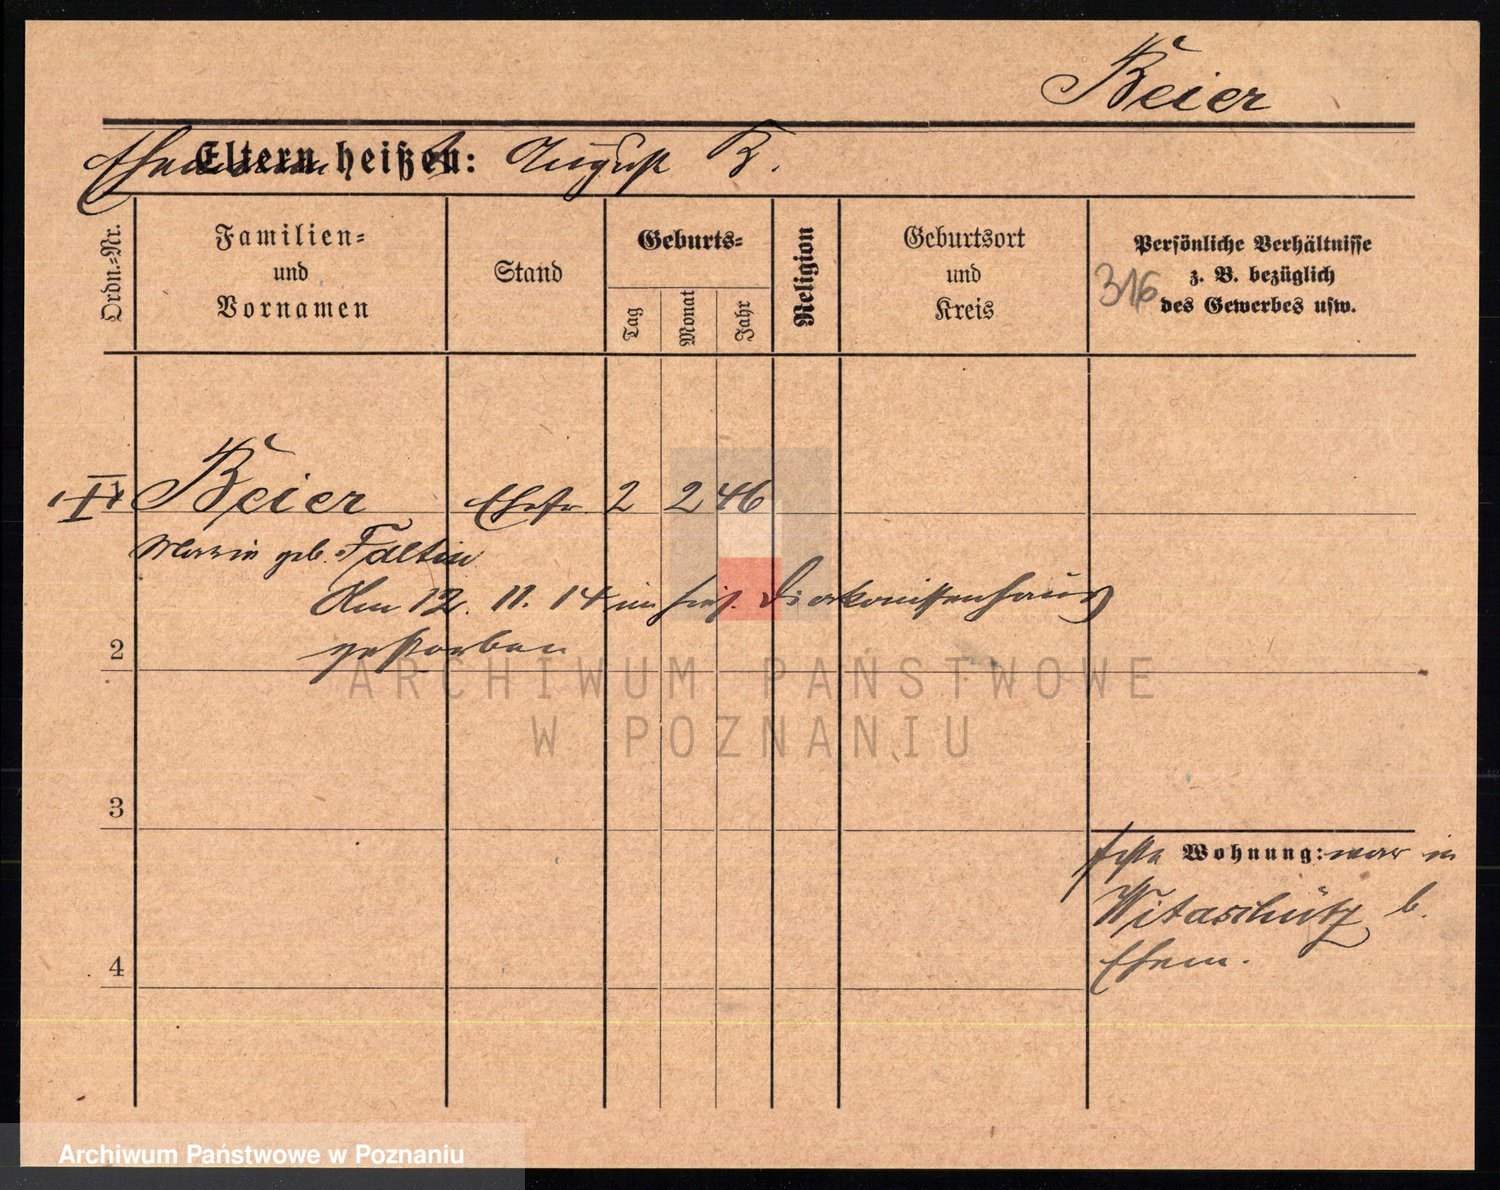 Beier
Ehemann Eltern heißen: August B.
Ordn.=Nr.
Familien=
und
Vornamen
Stand
Geburts=
Tag
Monat
Jahr
Religion
Geburtsort
und
Kreis
Persönliche Verhältnisse
z. B. bezüglich
des Gewerbes usw.
316
Beier Ehefr. 2 2 46
Maria geb. Faltin
Am 12. 11. 14 im hies. Diakonissenhaus
gestorben
2
3
4
Wohnung: war in
Witaschütz b.
Ehem.
ARCHIWUM PAŃSTWOWE
W POZNANIU
Archiwum Państwowe w Poznaniu